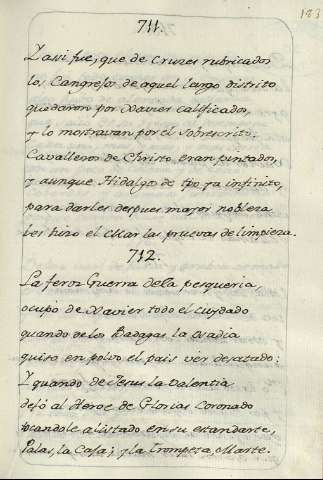 183
711.
Y assi fue, que de Cruzes rubricados
los Cangrejos de aquel largo distrito
quedaron por Xavier calificados,
y lo mostravan por el sobrescrito:
Cavalleros de Christo eran pintados,
y aunque Hidalgos de tpo ya infinito,
para darles despues mayor nobleza
les hizo el Mar las pruevas de limpieza.
712.
La feroz Guerra de la pesqueria,
ocupò de Xavier todo el cuydado
quando de los Badagas la
quiso en polvo el pais ver desatado:
Y quando de Jesus la Valentia
dejó al Heroe de Glorias Coronado
tocandole alistado en su estandarte,
Palas, la Caja; y la Trompeta, Marte.